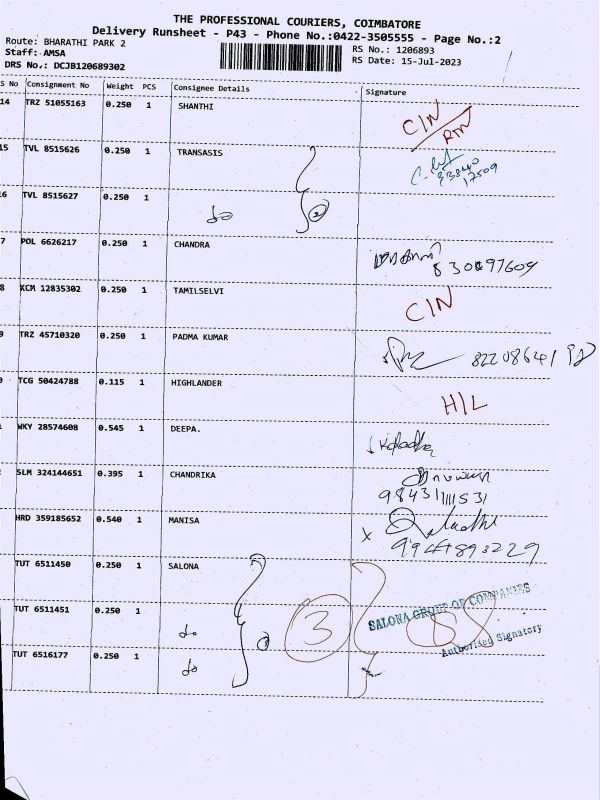 THE PROFESSIONAL COURIERS, COIMBATORE
Delivery Runsheet - P43 - Phone No.:0422-3505555 - Page No.:2
Route: BHARATHI PARK 2
Staff: AMSA
DRS No.: DCJB120689302
RS No.: 1206893
RS Date: 15-Jul-2023
S No Consignment No Weight PCS Consignee Details Signature
14 TRZ 51055163 0.250 1 SHANTHI CIN
RTN
15 TVL 8515626 0.250 1 TRANSASIS
93840
17509
16 TVL 8515627 0.250 1 do 2
7 POL 6626217 0.250 1 CHANDRA
8 KCM 12835302 0.250 1 TAMILSELVI CIN
9 TRZ 45710320 0.250 1 PADMA KUMAR
0 TCG 50424788 0.115 1 HIGHLANDER H/L
WKY 28574608 0.545 1 DEEPA.
SLM 324144651 0.395 1 CHANDRIKA
HRD 359185652 0.540 1 MANISA x
9944893229
TUT 6511450 0.250 1 SALONA
TUT 6511451 0.250 1 do 3 3 SALONA GROUP OF COMPANIES
Authorised Signatory
TUT 6516177 0.250 1 do